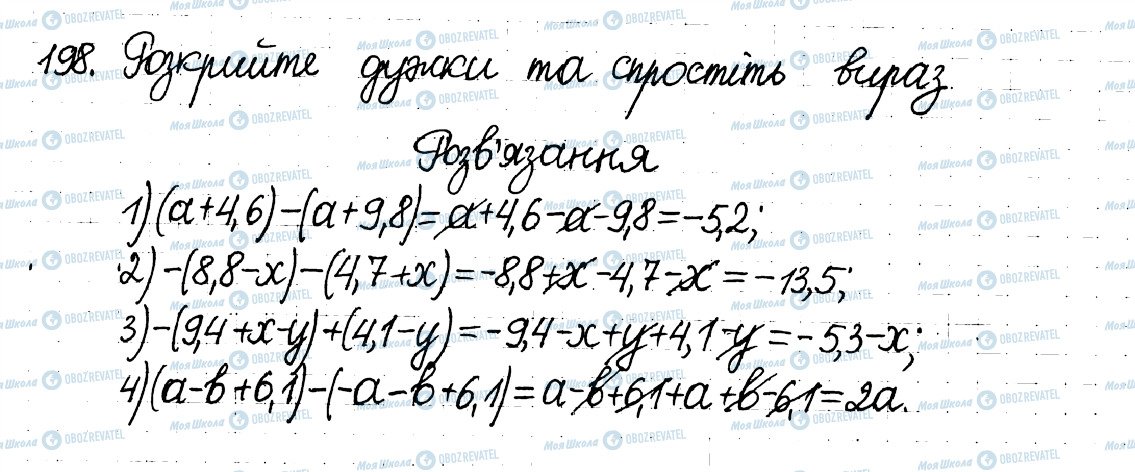 198. Розкрийте дужки та спростіть вираз
Розв'язання
1) (a+4,6)-(a+9,8)=a+4,6-a-9,8=-5,2;
2) -(8,8-x)-(4,7+x)=-8,8+x-4,7-x=-13,5;
3) -(9,4+x-y)+(4,1-y)=-9,4-x+y+4,1-y=-5,3-x;
4) (a-b+6,1)-(-a-b+6,1)=a-b+6,1+a+b-6,1=2a.